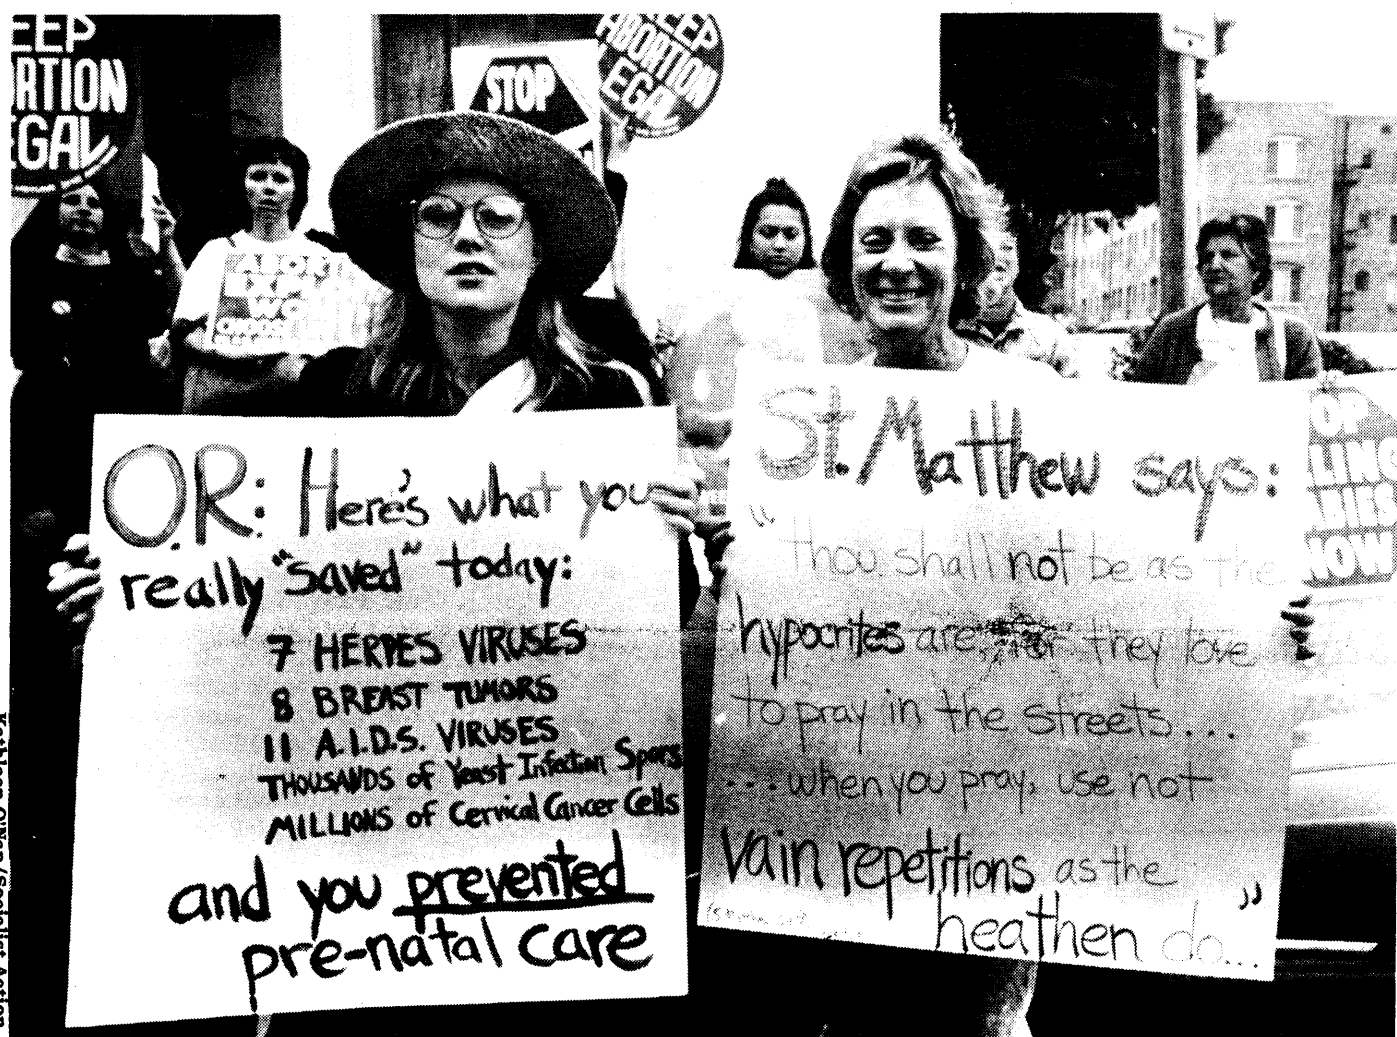 EEP
RTION
EGAL
STOP
EEP
ABORTION
EGAL
O.R: Here's what you
really "saved" today:
7 HERPES VIRUSES
8 BREAST TUMORS
11 A.I.D.S. VIRUSES
THOUSANDS of Yeast Infection Spors
MILLIONS of Cervical Cancer Cells
and you prevented
pre-natal care
St. Matthew says:
"thou shall not be as the
hypocrites are, for they love
to pray in the streets...
...when you pray, use not
vain repetitions as the
heathen do..."
OP
LING
BIES
NOW